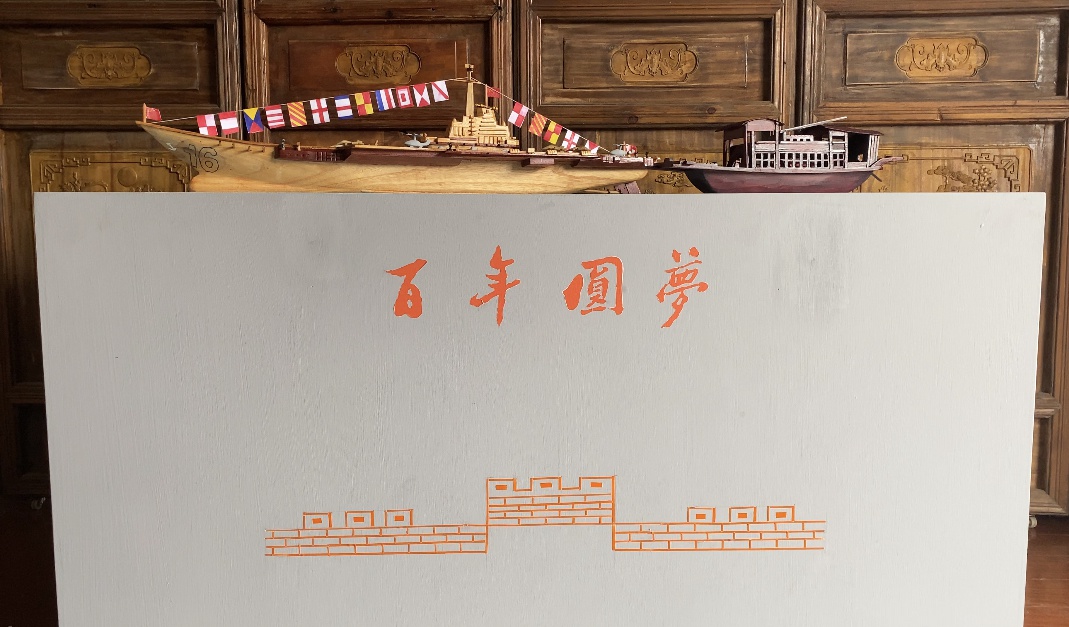 16
百年圓夢